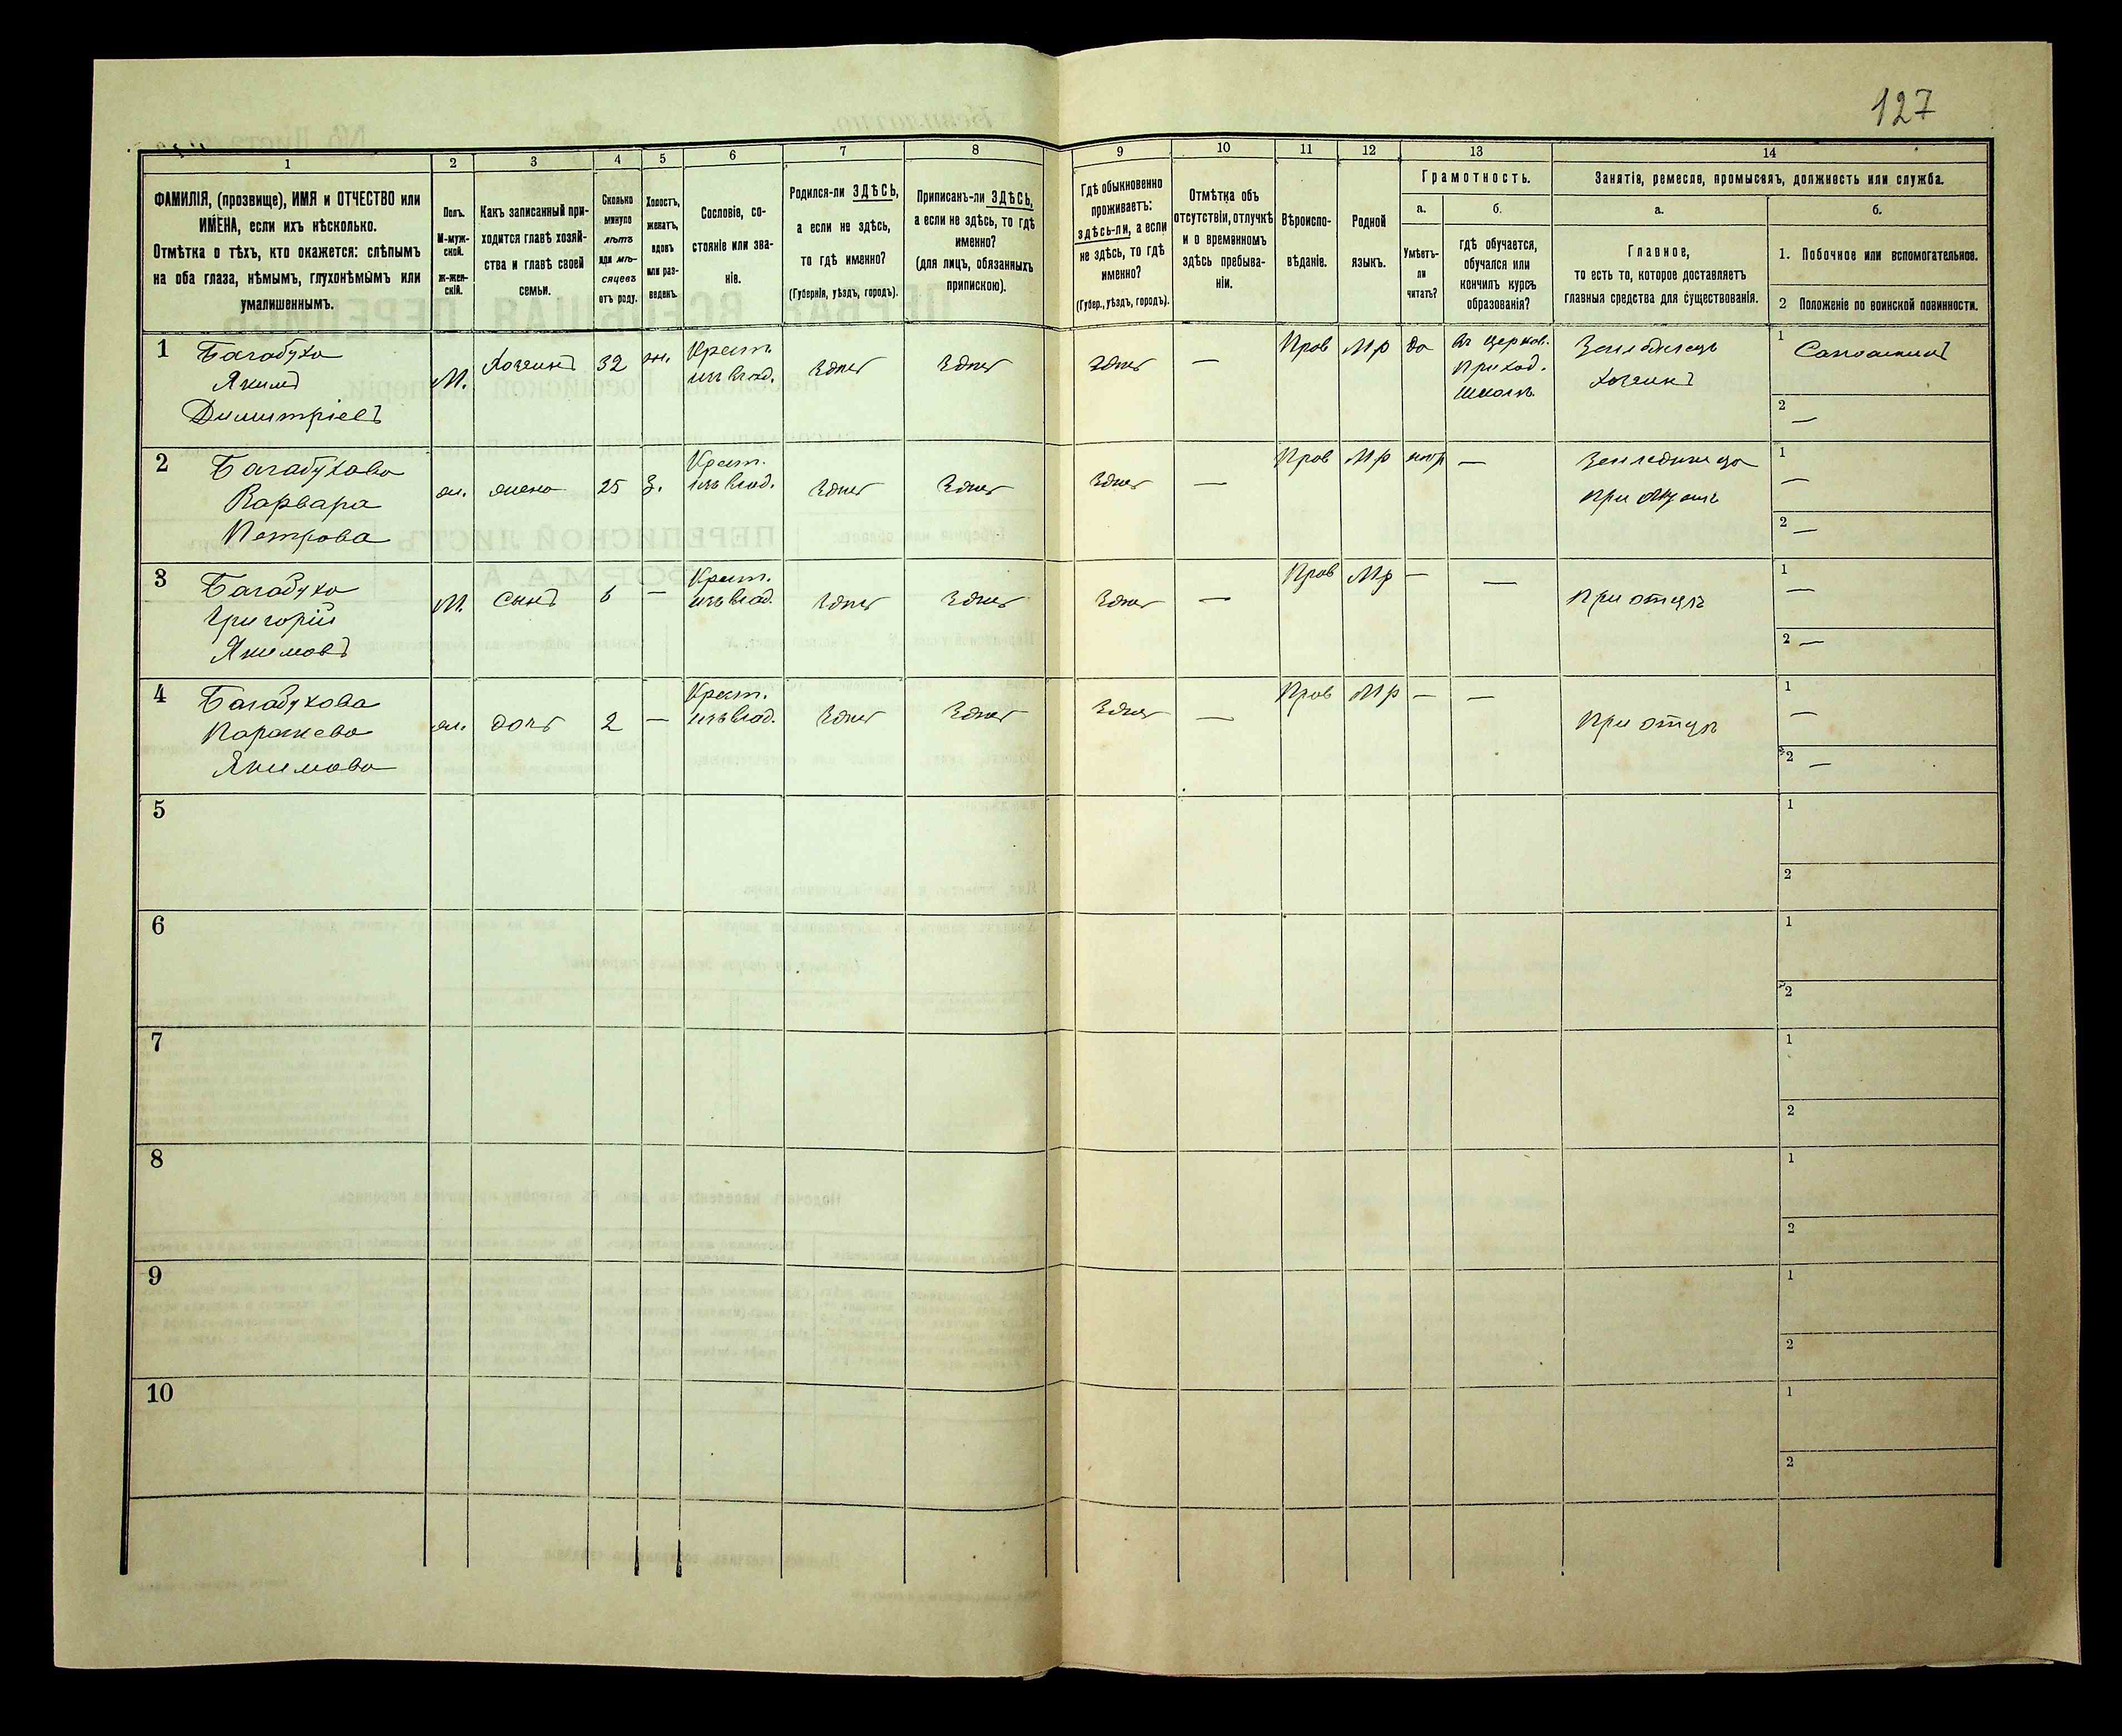 127
1
2
3
4
5
6
7
8
9
10
11
12
13
14
ФАМИЛІЯ, (прозвище), ИМЯ и ОТЧЕСТВО или
ИМЕНА, если ихъ нѣсколько.
Отмѣтка о тѣхъ, кто окажется: слѣпымъ
на оба глаза, нѣмымъ, глухонѣмымъ или
умалишеннымъ.
Полъ.
М-муж-
ской.
ж-жен-
скій.
Какъ записанный при-
ходится главѣ хозяй-
ства и главѣ своей
семьи.
Сколько
минуло
лѣтъ
или мѣ-
сяцевъ
отъ роду.
Холостъ,
женатъ,
вдовъ
или раз-
веденъ.
Сословіе, со-
стояніе или зва-
ніе.
Родился-ли ЗДѢСЬ,
а если не здѣсь,
то гдѣ именно?
(Губернія, уѣздъ, городъ).
Приписанъ-ли ЗДѢСЬ,
а если не здѣсь, то гдѣ
именно?
(для лицъ, обязанныхъ
припискою).
Гдѣ обыкновенно
проживаетъ:
здѣсь-ли, а если
не здѣсь, то гдѣ
именно?
(Губер., уѣздъ, городъ).
Отмѣтка объ
отсутствіи, отлучкѣ
и о временномъ
здѣсь пребыва-
ніи.
Вѣроиспо-
вѣданіе.
Родной
языкъ.
Грамотность.
а.
Умѣетъ-
ли
читать?
б.
гдѣ обучается,
обучался или
кончилъ курсъ
образованія?
Занятіе, ремесло, промыселъ, должность или служба.
а.
Главное,
то есть то, которое доставляетъ
главныя средства для существованія.
б.
1. Побочное или вспомогательное.
2 Положеніе по воинской повинности.
1 Багабуха
Якимъ
Димитріевъ
М.
Хозяинъ
32
жн.
Крест.
изъ влад.
Здѣсь
Здѣсь
Здѣсь
—
Прав
Мр
да
въ церков.
приход.
школѣ
Земледѣлецъ
хозяинъ
1
2 —
2 Багабухова
Варвара
Петрова
ж.
жена
25
з.
Крест.
изъ влад.
Здѣсь
Здѣсь
Здѣсь
—
Прав
Мр
нетъ
—
при мужѣ
1 —
2 —
3 Багабуха
Григорій
Якимовъ
М.
сынъ
6
—
Крест.
изъ влад.
Здѣсь
Здѣсь
Здѣсь
—
Прав
Мр
—
—
при отцѣ
1 —
2 —
4 Багабухова
Параскева
Якимова
ж.
дочь
2
—
Крест.
изъ влад.
Здѣсь
Здѣсь
Здѣсь
—
Прав
Мр
—
—
при отцѣ
1 —
2 —
5
1
2
6
1
2
7
1
2
8
1
2
9
1
2
10
1
2